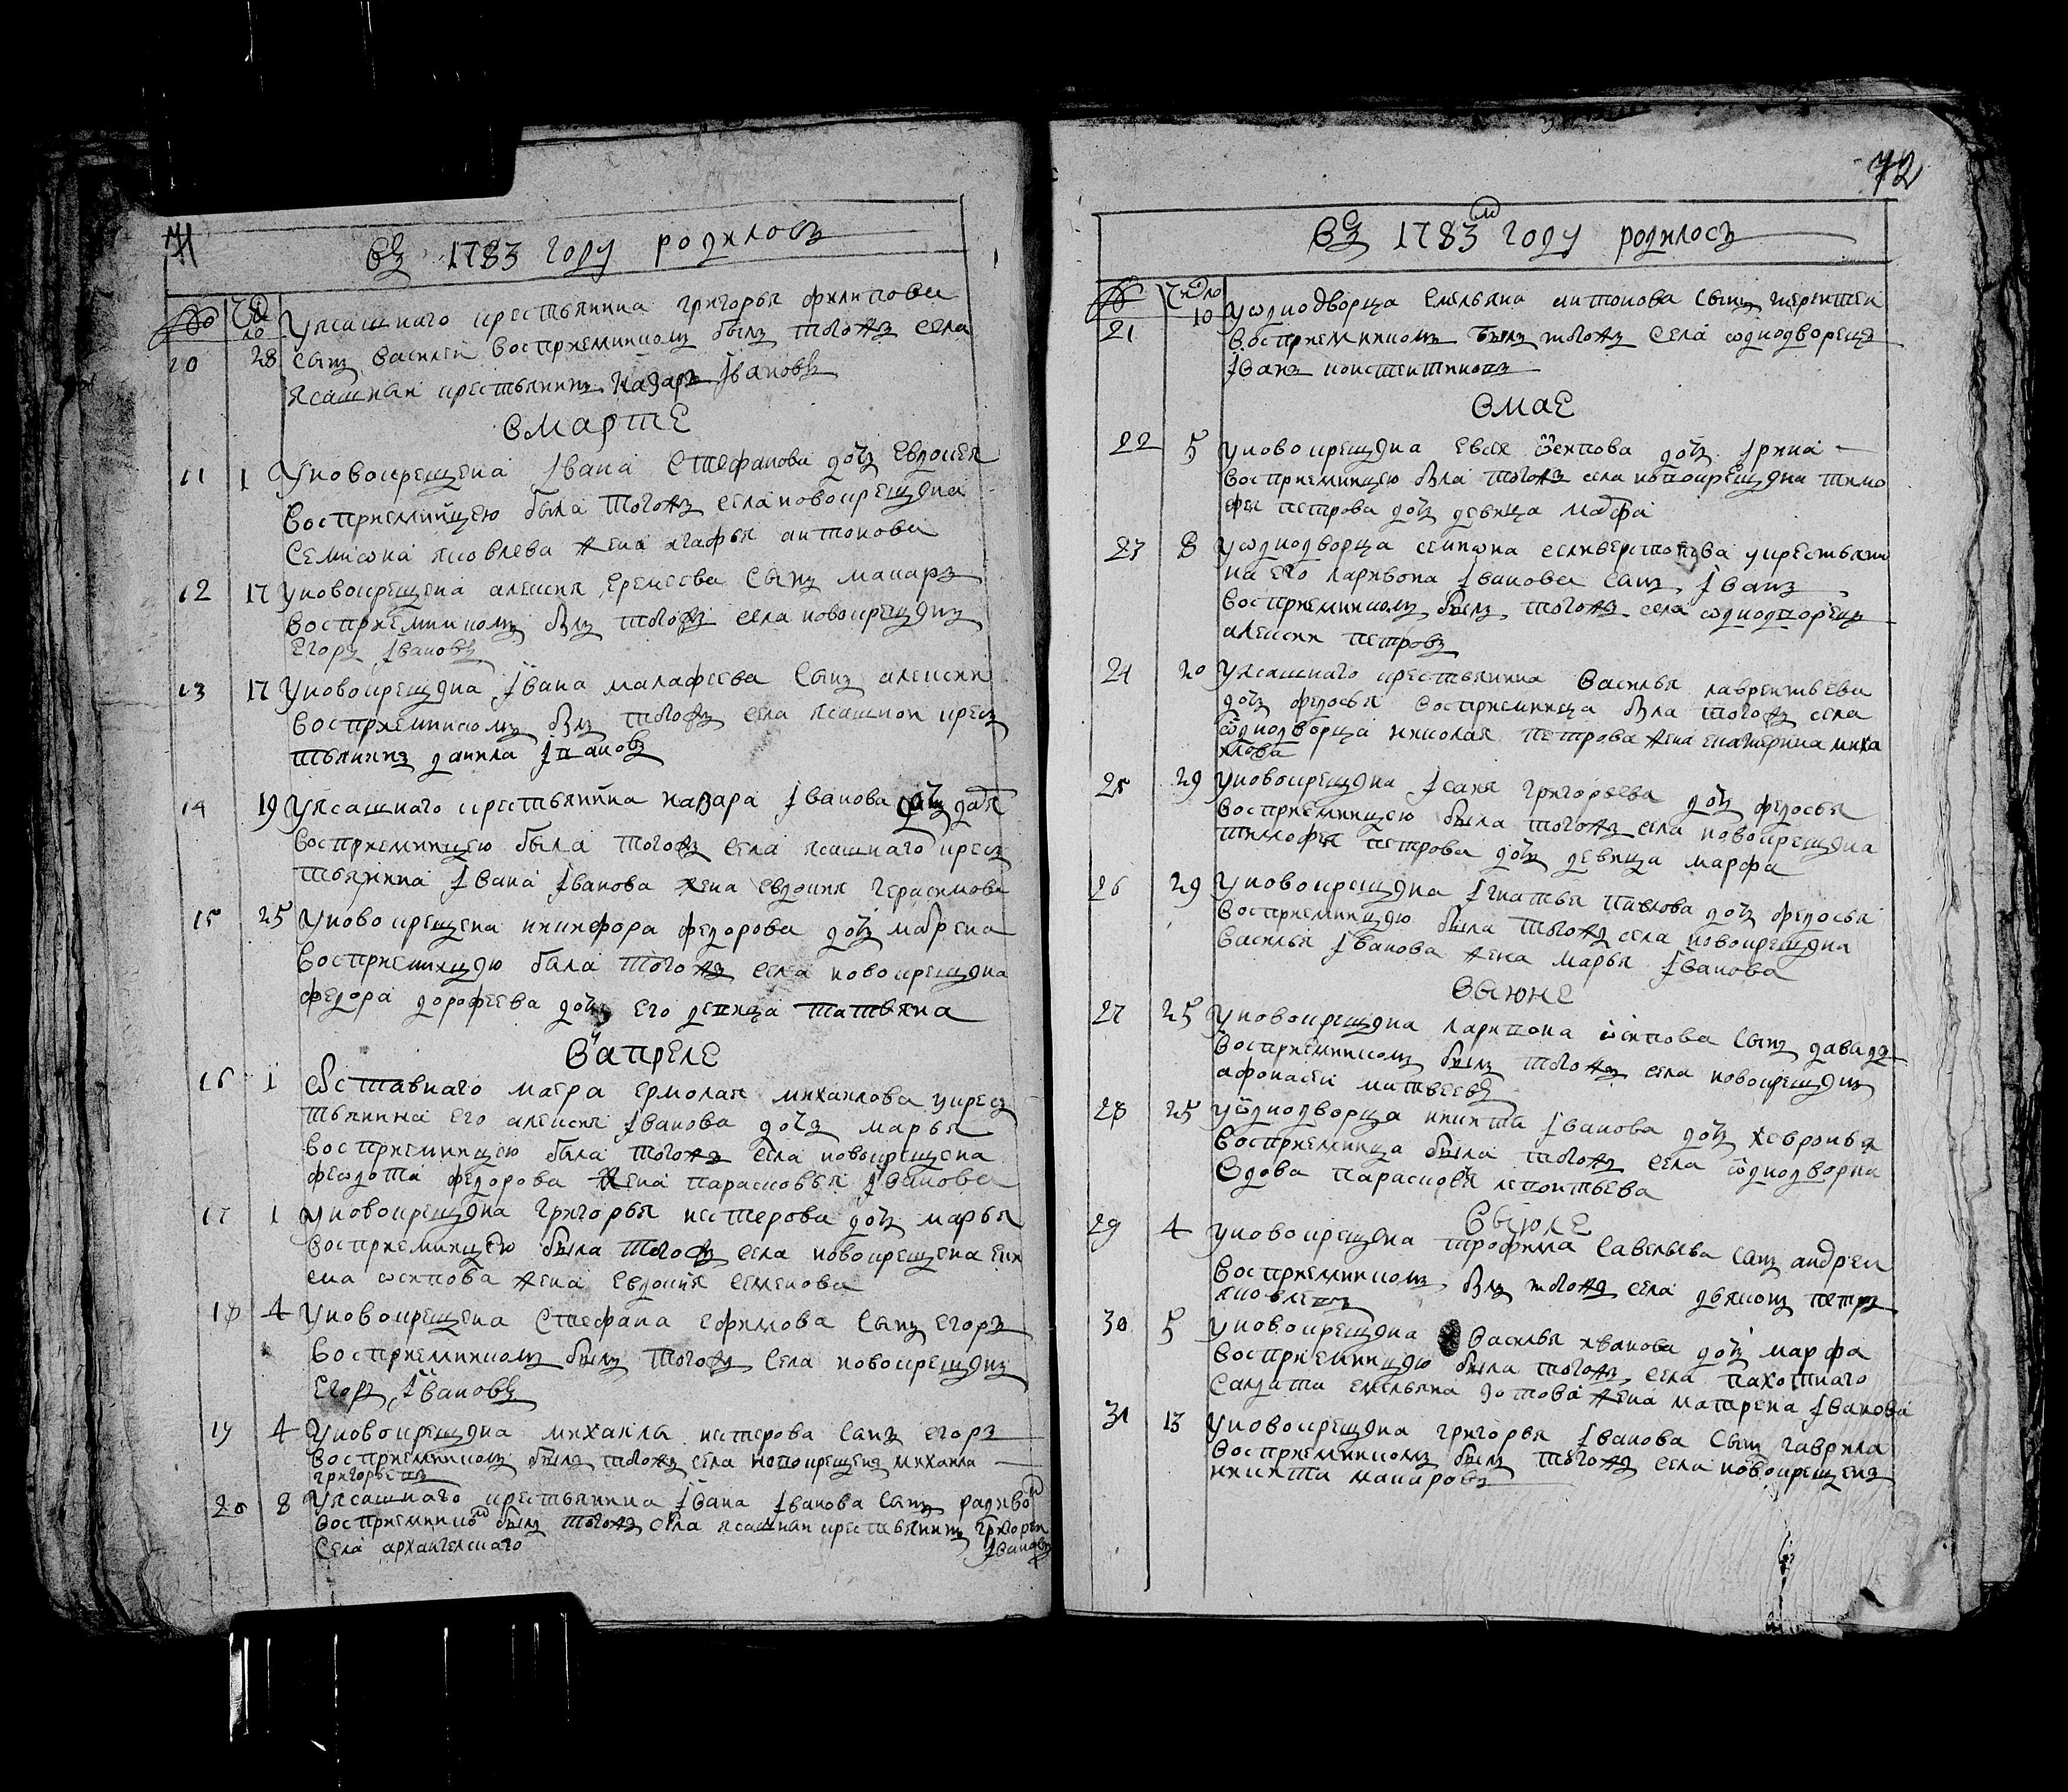 71
Въ 1783 году родилось
№ Число
У ясашнаго крестьянина григорья филипова
10 28 сынъ василей восприемникомъ былъ тогожъ села
ясашнаи крестьянинъ назаръ Iвановъ
в марте
11 1 У новокрещена Iвана Стефанова дочь Евдокея
восприемницею была тогожъ села новокрещена
Семиѡна яковлева жена агафья антонова
12 17 У новокрещена алексея Еремеева сынъ макаръ
восприемникомъ былъ тогожъ села новокрещенъ
Егоръ Iвановъ
13 17 У новокрещена Iвана малафеева сынъ алексеи
восприемникомъ былъ тогожъ села ясашнои крес
тьянинъ данила Iвановъ
14 19 У ясашнаго крестьянина назара Iванова дочь дарья
восприемницею была тогожъ села ясашнаго крес
тьянина Iвана Iванова жена евдокия герасимова
15 25 У новокрещена никифора федорова дочь маврена
восприемницею была тогожъ села новокрещена
федора дорофеева дочь его девица татьяна
в апреле
16 1 маеора ермолая михаилова у крес
тьянина его алексея Iванова дочь марья
восприемницею была тогожъ села новокрещена
феѡдота федорова жена парасковья Iванова
17 1 У новокрещена григорья нестерова дочь марья
восприемницею была тогожъ села новокрещена
ѡсипова жена Евдокия Семенова
18 4 У новокрещена Стефана ефимова сынъ егоръ
восприемникомъ былъ тогожъ села новокрещенъ
Егоръ Iвановъ
19 4 У новокрещена михаила нестерова сынъ егоръ
восприемникомъ былъ тогожъ села новокрещенъ михаила
григорьевъ
20 8 У ясашнаго крестьянина Iвана Iванова сынъ радивон
восприемникомъ былъ тогожъ села ясашнаи крестьянинъ григореи
Села архангелскаго Iвановъ
72
Въ 1783м году родилось
№ Число
21 10 У ѡднодворца Емельяна антонова сынъ терентеи
восприемникомъ былъ тогожъ села ѡднодворецъ
Iванъ константиновъ
в мае
22 5 У новокрещена Евсея ѡсипова дочь Iрина
восприемницею была тогожъ села новокрещена тимо
феи петрова дочь девица марфа
23 8 У ѡднодворца семиѡна селиверстова у крестьяни
на его ларивона Iванова сынъ Iванъ
восприемникомъ былъ тогожъ села ѡднодворецъ
алексеи петровъ
24 20 У ясашнаго крестьянина василья лаврентьева
дочь федосья восприемница была тогожъ села
ѡднодворца николая петрова жена екатерина миха
илова
25 29 У новокрещена Iсаия григорьева дочь федосья
восприемницею была тогожъ села новокрещена
тимофея петрова дочь девица марфа
26 29 У новокрещена Iгнатья павлова дочь федосья
восприемницею была тогожъ села новокрещена
василья Iванова жена марья Iванова
в ыюне
27 25 У новокрещена ларивона ѡсипова сынъ давыдъ
восприемникомъ былъ тогожъ села новокрещенъ
афонасеи матвеевъ
28 25 У ѡднодворца никита Iванова дочь хевронья
восприемница была тогожъ села ѡднодворка
вдова парасковя леонтьева
в ыюле
29 4 У новокрещена трофима савельева сынъ андреи
восприемникомъ былъ тогожъ села дьяконъ петръ
яковлевъ
30 5 У новокрещена василья иванова дочь марфа
восприемницею была тогожъ села пахотнаго
салдата емельяна зотова жена матрена Iванова
31 13 У новокрещена григорья Iванова сынъ гаврила
восприемникомъ былъ тогожъ села новокрещенъ
никита макаровъ